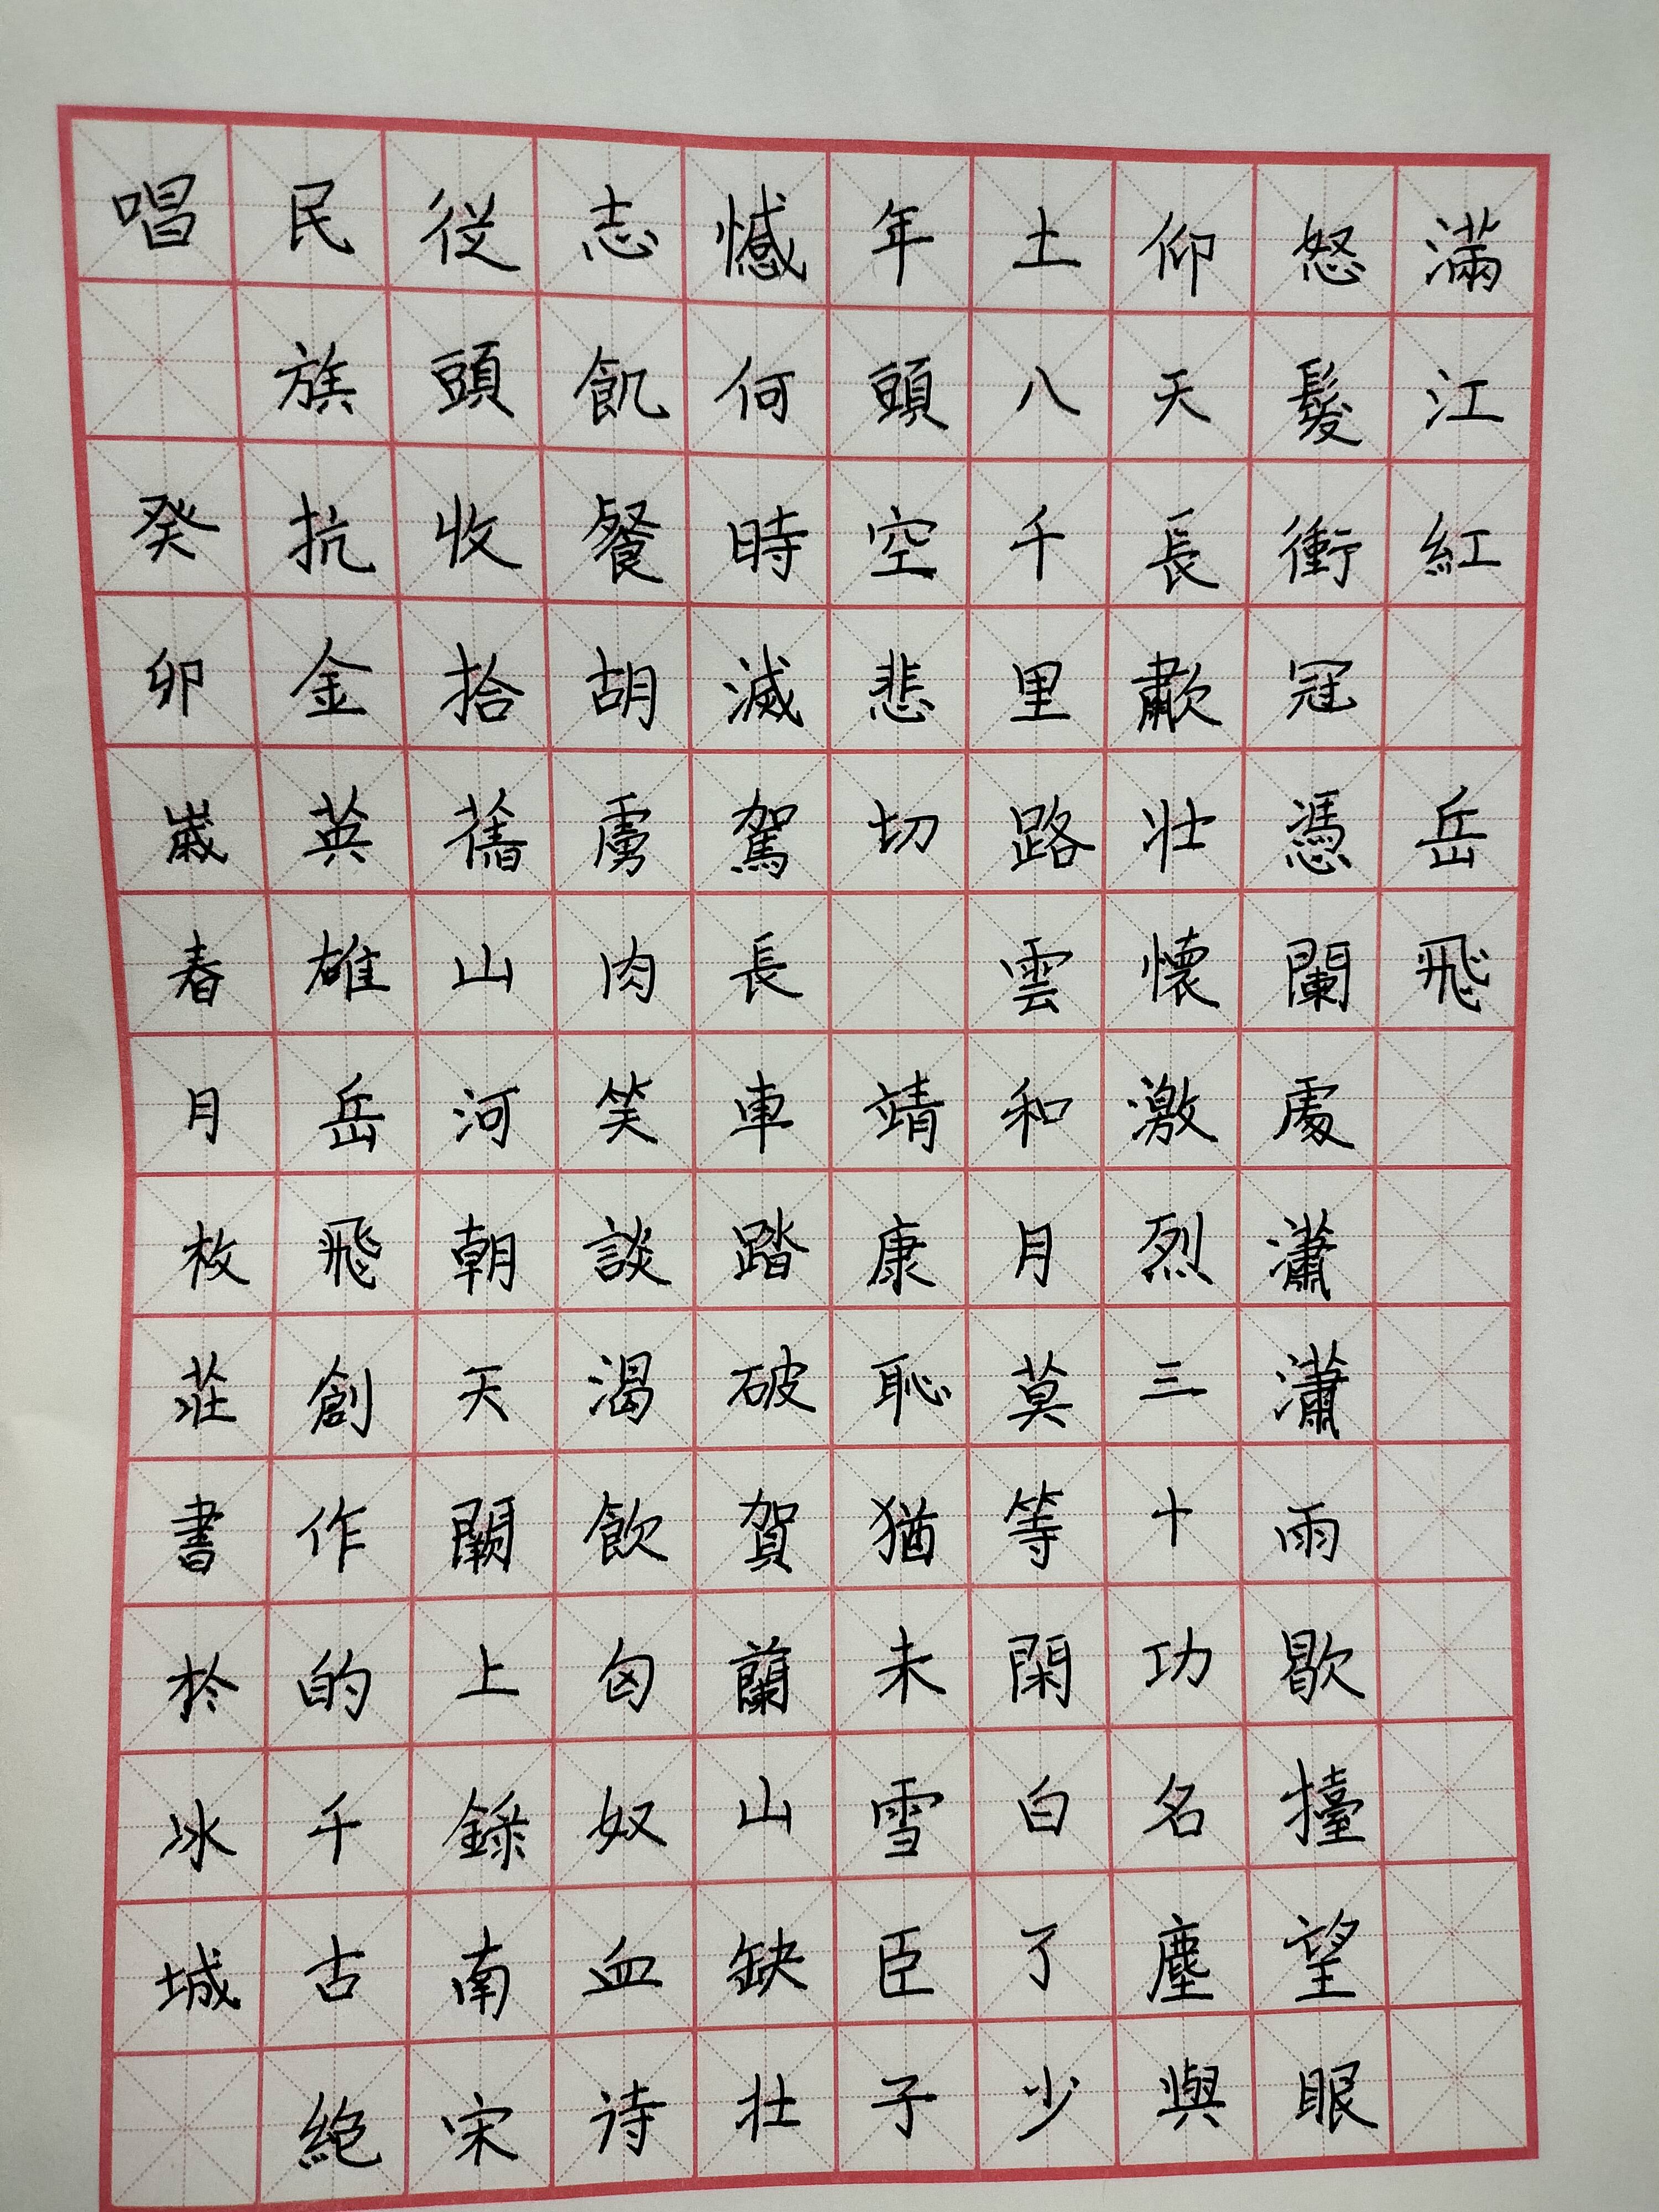 滿江紅 岳飛
怒髮衝冠憑闌處瀟瀟雨歇擡望眼
仰天長歗壯懷激烈三十功名塵與
土八千里路雲和月莫等閑白了少
年頭空悲切 靖康恥猶未雪臣子
憾何時滅駕長車踏破賀蘭山缺壯
志飢餐胡虜肉笑談渴飲匈奴血待
從頭收拾舊山河朝天闕上錄南宋
民族抗金英雄岳飛創作的千古絕
唱 癸卯歲春月枚莊書於冰城